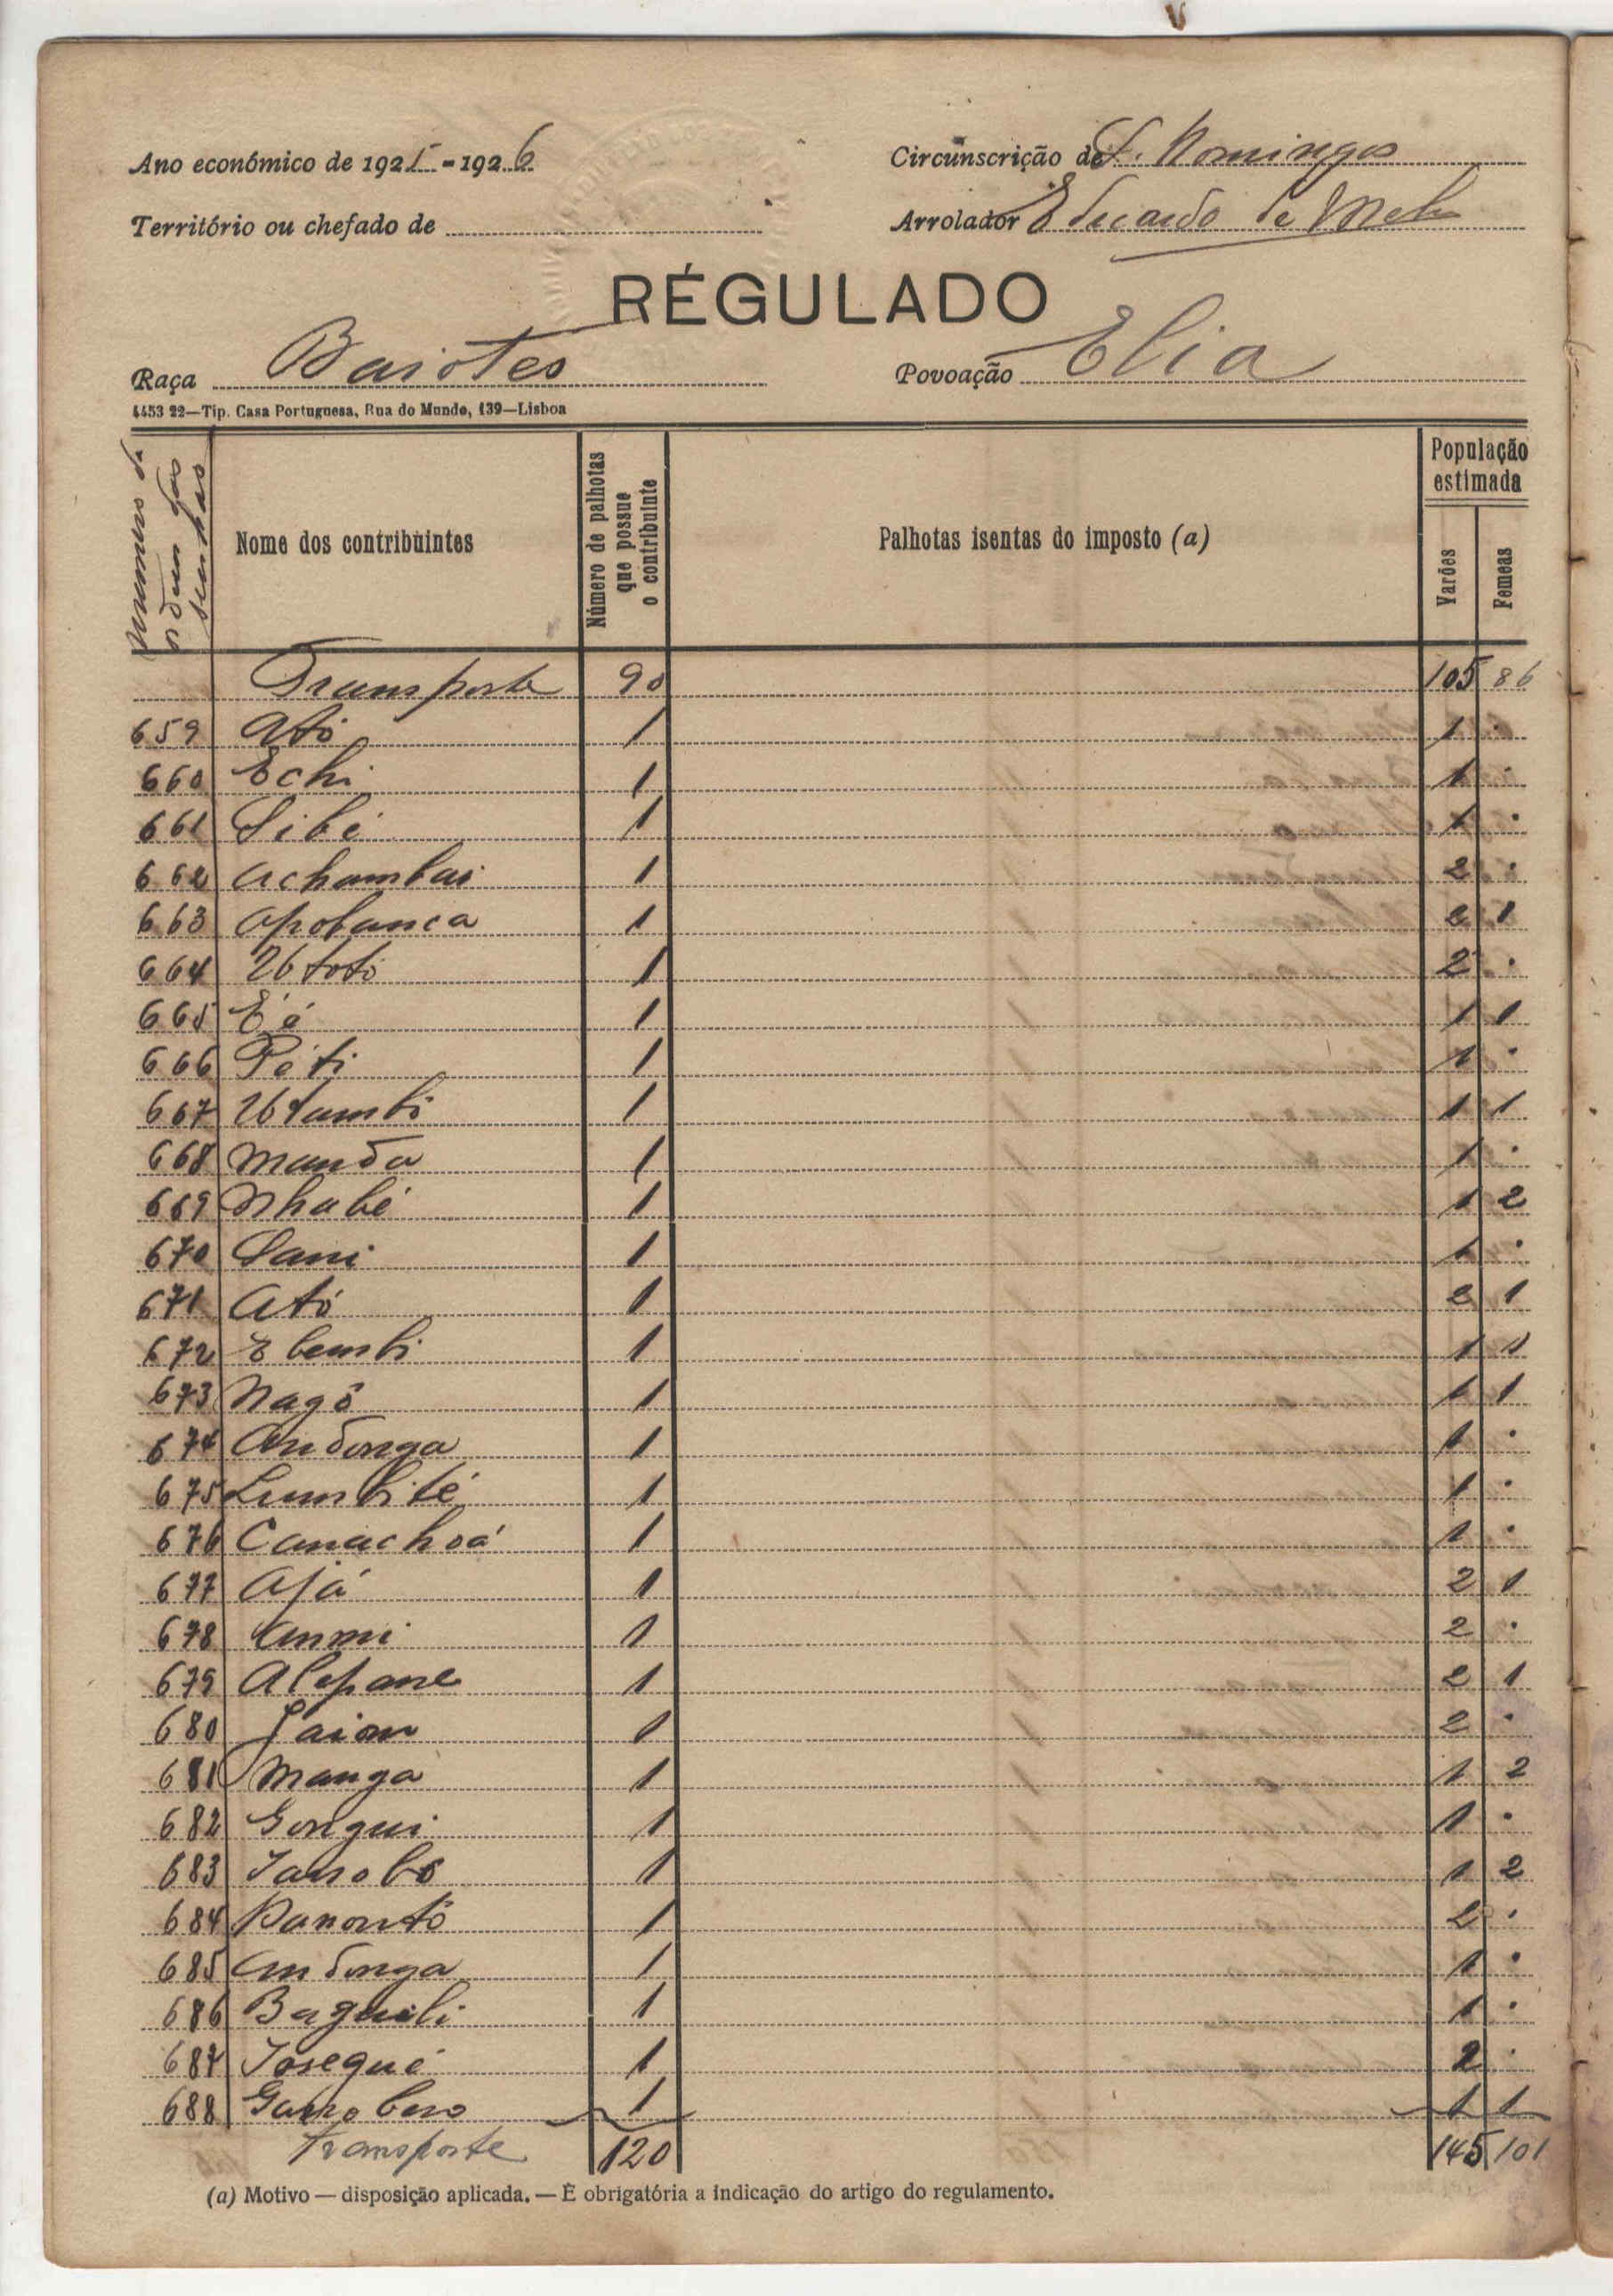 Ano económico de 1925-1926
Circunscrição de S. Domingos
Território ou chefado de
Arrolador Eduardo de Melo
RÉGULADO
Raça Baiotes
Povoação Elia
4453 22—Tip. Casa Portuguesa, Rua do Mundo, 139—Lisboa
Numero de ordem das senhas
Nome dos contribuintes
Número de palhotas que possue o contribuinte
Palhotas isentas do imposto (a)
População estimada
Varões
Femeas
Transporte 90 105 86
659 Ató 1 1 .
660 Echi 1 1 .
661 Sibé 1 1 .
662 Achambai 1 2 .
663 Apobanca 1 2 1
664 Utoti 1 2 .
665 Éé 1 1 1
666 Péti 1 1 .
667 1 1 1
668 Manda 1 1 .
669 Nhabé 1 1 2
670 Sani 1 1 .
671 Ató 1 2 1
672 Ebembi 1 1 1
673 Nagô 1 1 1
674 Andonga 1 1 .
675 Lumbité 1 1 .
676 Canachoá 1 1 .
677 Ajá 1 2 1
678 Anmi 1 2 .
679 Alepane 1 2 1
680 Jaion 1 2 .
681 Manga 1 1 2
682 Gongui 1 1 .
683 1 1 2
684 Panontó 1 2 .
685 Andonga 1 1 .
686 Baguili 1 1 .
687 Josegué 1 2 .
688 1 1 1
Transporte 120 145 101
(a) Motivo — disposição aplicada. — É obrigatória a indicação do artigo do regulamento.